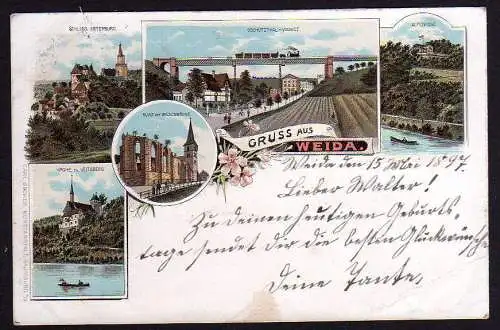 SCHLOSS OSTERBURG
OSCHÜTZTHAL-VIADUCT
RUINE DER WIDENKIRCHE
KIRCHE ZU VEITSBERG
GRUSS AUS
WEIDA.
Weida den 15 Mai 1897
Lieber Walter!
Zu deinem heutigen Geburts-
tage sendet dir die besten Glückwünsche
Deine Tante,